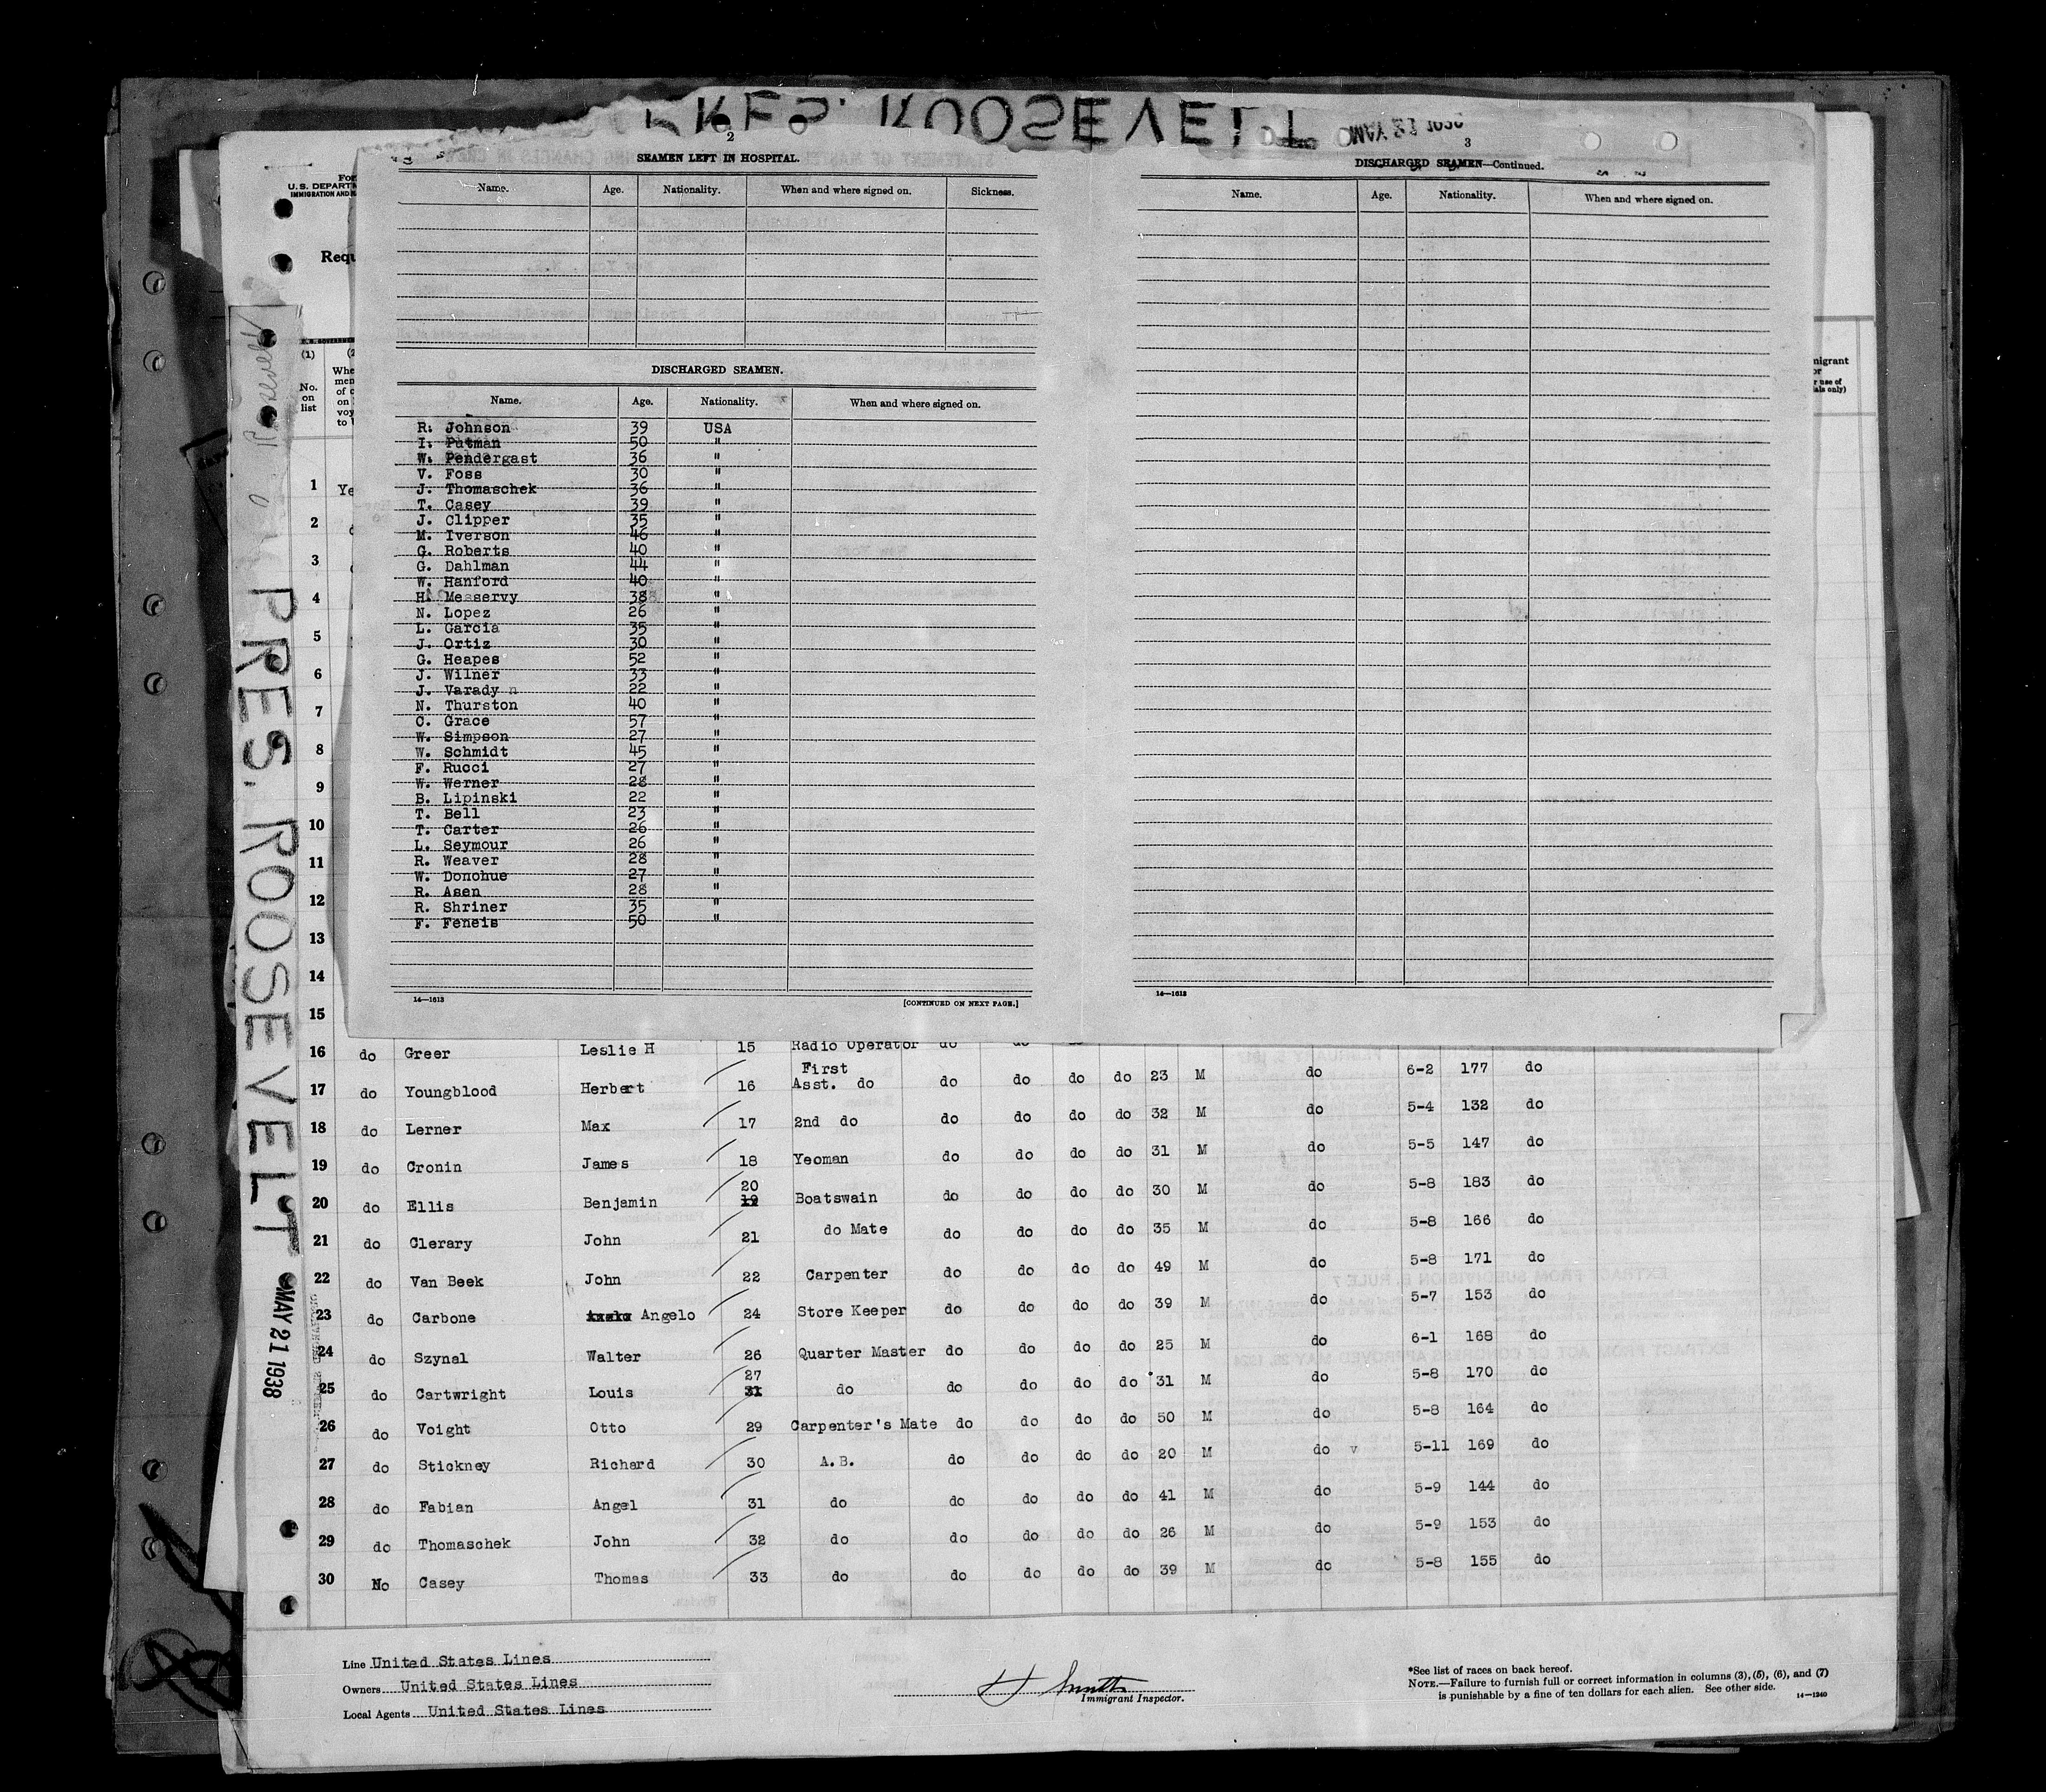 PRES. ROOSEVELT
MAY 21 1938
2
SEAMEN LEFT IN HOSPITAL.
Name. Age. Nationality. When and where signed on. Sickness.
DISCHARGED SEAMEN.
Name. Age. Nationality. When and where signed on.
R. Johnson 39 USA
I. Putman 50 "
W. Pendergast 36 "
V. Foss 30 "
J. Thomaschek 36 "
T. Casey 39 "
J. Clipper 35 "
M. Iverson 46 "
G. Roberts 40 "
G. Dahlman 44 "
W. Hanford 40 "
H. Messervy 38 "
N. Lopez 26 "
L. Garcia 35 "
J. Ortiz 30 "
G. Heapes 52 "
J. Wilner 33 "
J. Varady 22 "
N. Thurston 40 "
C. Grace 57 "
W. Simpson 27 "
W. Schmidt 45 "
F. Rucci 27 "
W. Werner 28 "
B. Lipinski 22 "
T. Bell 23 "
T. Carter 26 "
L. Seymour 26 "
R. Weaver 28 "
W. Donohue 27 "
R. Asen 28 "
R. Shriner 35 "
F. Feneis 50 "
14—1613 [CONTINUED ON NEXT PAGE.]
3
DISCHARGED SEAMEN—Continued.
Name. Age. Nationality. When and where signed on.
14—1613
For
U.S. DEPARTM
IMMIGRATION AND N
Requ
(1)
No.
on
list
(2
Whe
men
of c
on
voy
to
migrant
or
r use of
ials only)
1 Ye
2
3
4
5
6
7
8
9
10
11
12
13
14
15
16 do Greer Leslie H 15 Radio Operator do do
17 do Youngblood Herbert 16 First Asst. do do do do do 23 M do 6-2 177 do
18 do Lerner Max 17 2nd do do do do do 32 M do 5-4 132 do
19 do Cronin James 18 Yeoman do do do do 31 M do 5-5 147 do
20 do Ellis Benjamin 20 19 Boatswain do do do do 30 M do 5-8 183 do
21 do Clerary John 21 do Mate do do do do 35 M do 5-8 166 do
22 do Van Beek John 22 Carpenter do do do do 49 M do 5-8 171 do
23 do Carbone Angelo 24 Store Keeper do do do do 39 M do 5-7 153 do
24 do Szynal Walter 26 Quarter Master do do do do 25 M do 6-1 168 do
25 do Cartwright Louis 27 31 do do do do do 31 M do 5-8 170 do
26 do Voight Otto 29 Carpenter's Mate do do do do 50 M do 5-8 164 do
27 do Stickney Richard 30 A.B. do do do do 20 M do v 5-11 169 do
28 do Fabian Angel 31 do do do do do 41 M do 5-9 144 do
29 do Thomaschek John 32 do do do do do 26 M do 5-9 153 do
30 No Casey Thomas 33 do do do do do 39 M do 5-8 155 do
Line United States Lines
Owners United States Lines
Local Agents United States Lines
Immigrant Inspector.
*See list of races on back hereof.
NOTE.—Failure to furnish full or correct information in columns (3), (5), (6), and (7)
is punishable by a fine of ten dollars for each alien. See other side. 14—1240
Roosevelt
PRES. ROOSEVELT
MAY 21 1938